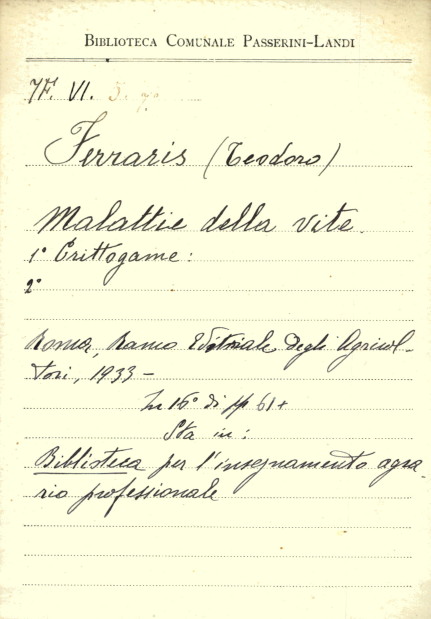 BIBLIOTECA COMUNALE PASSERINI-LANDI
7F. VI. 5. 7°
Ferraris (Teodoro)
Malattie della vite.
1° Crittogame:
2°
Roma, Ramo Editoriale degli Agricol-
tori, 1933 -
In 16° di pp 61+
Sta in:
Biblioteca per l'insegnamento agra
rio professionale